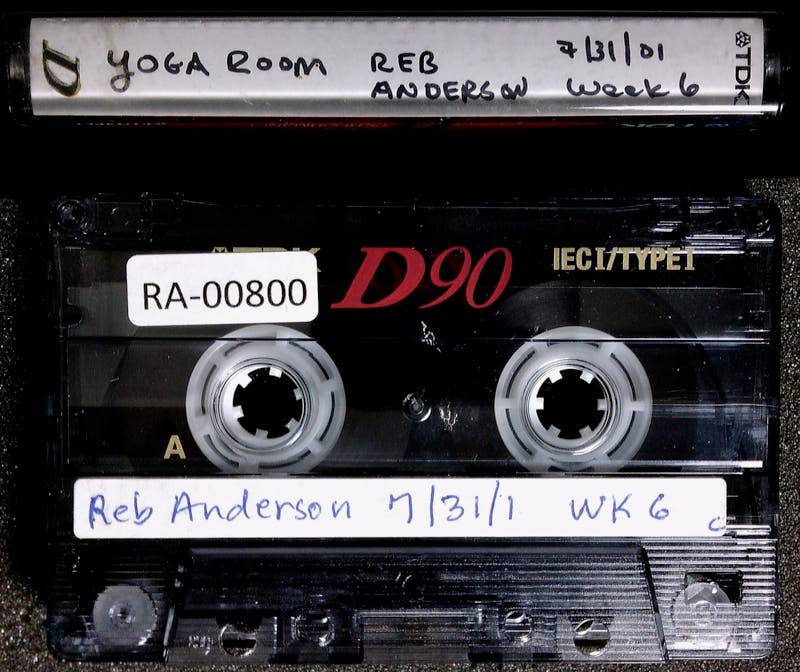 D YOGA ROOM REB 7/31/01 TDK
ANDERSON Week 6
TDK
D90
IEC I/TYPE I
RA-00800
A
Reb Anderson 7/31/1 WK 6